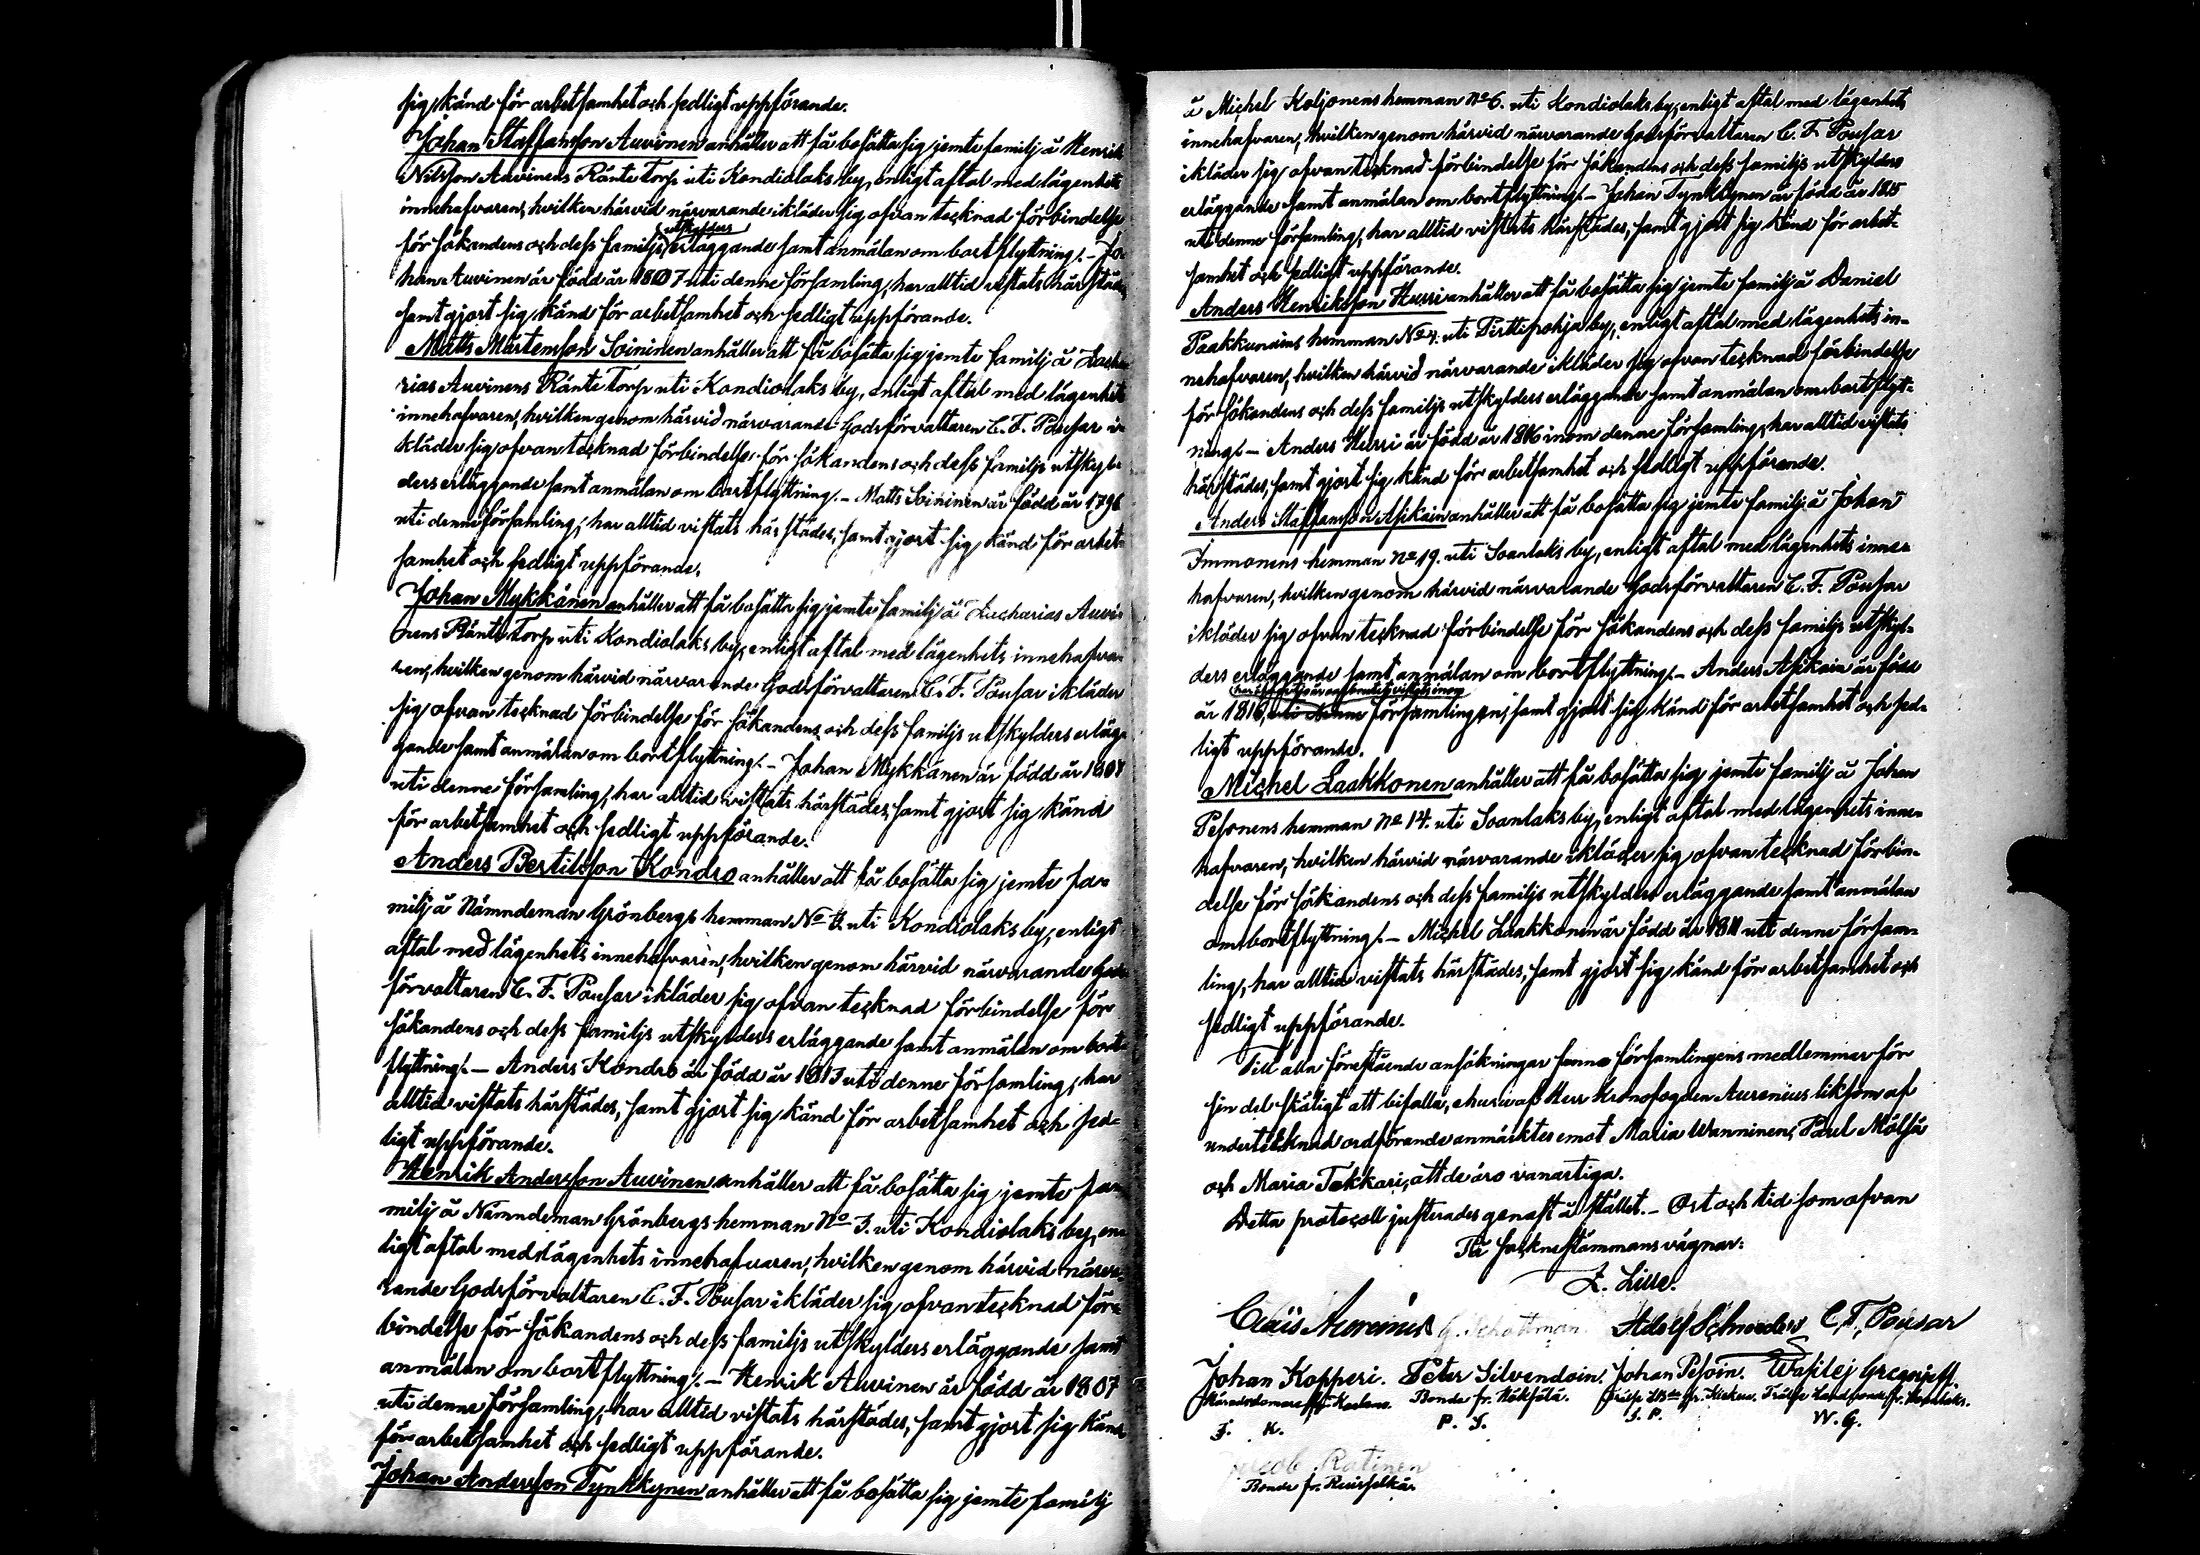 sig känd för arbetsamhet och sedligt uppförande.
Johan Staffansson Auvinen anhåller att få bosätta sig jemte familj å Henrik
Nilsson Auvinens Ränte Torp uti Kondiolaks by, enligt aftal med lägenhets
innehafvaren, hvilken härvid närvarande ikläder sig ofvan tecknad förbindelse
utskylders
för sökandens och dess familjs erläggande samt anmälan om bortflyttning. – Jo-
han Auvinen är född år 1807 uti denne församling, har alltid vistats härstädes,
samt gjort sig känd för arbetsamhet och sedligt uppförande.
Matts Mårtensson Soininen anhåller att få bosätta sig jemte familj å Zacha-
rias Auvinens Ränte Torp uti Kondiolaks by, enligt aftal med lägenhets
innehafvaren, hvilken genom härvid närvarande Godsförvaltaren C. F. Pousar i-
kläder sig ofvan tecknad förbindelse för sökandens och dess familjs utskyl-
ders erläggande samt anmälan om bortflyttning. – Matts Soininen är född år 1796
uti denne församling, har alltid vistats härstädes, samt gjort sig känd för arbet-
samhet och sedligt uppförande.
Johan Mykkänen anhåller att få bosätta sig jemte familj å Zacharias Auvi-
nens Ränte Torp uti Kondiolaks by, enligt aftal med lägenhets innehafva-
ren, hvilken genom härvid närvarande Godsförvaltaren C. F. Pousar ikläder
sig ofvan tecknad förbindelse för sökandens och dess familjs utskylders erläg-
gande samt anmälan om bortflyttning. – Johan Mykkänen är född år 1808
uti denne församling, har alltid vistats härstädes, samt gjort sig känd
för arbetsamhet och sedligt uppförande.
Anders Bertilsson Kondro anhåller att få bosätta sig jemte fa-
milj å Nämndeman Grönbergs hemman No 3. uti Kondiolaks by, enligt
aftal med lägenhets innehafvaren, hvilken genom härvid närvarande Gods-
förvaltaren C. F. Pousar ikläder sig ofvan tecknad förbindelse för
sökandens och dess familjs utskylders erläggande samt anmälan om bort-
flyttning. – Anders Kondro är född år 1813 uti denne församling, har
alltid vistats härstädes, samt gjort sig känd för arbetsamhet och sed-
ligt uppförande.
Henrik Andersson Auvinen anhåller att få bosätta sig jemte fa-
milj å Nämndeman Grönbergs hemman No 3. uti Kondiolaks by, en-
ligt aftal med lägenhets innehafvaren, hvilken genom härvid närva-
rande Godsförvaltaren C. F. Pousar ikläder sig ofvan tecknad för-
bindelse för sökandens och dess familjs utskylders erläggande samt
anmälan om bortflyttning. – Henrik Auvinen är född år 1807
uti denne församling, har alltid vistats härstädes, samt gjort sig känd
för arbetsamhet och sedligt uppförande.
Johan Andersson Tynkkynen anhåller att få bosätta sig jemte familj
å Michel Koljonens hemman No 6. uti Kondiolaks by, enligt aftal med lägenhets
innehafvaren, hvilken genom härvid närvarande Godsförvaltaren C. F. Pousar
ikläder sig ofvan tecknad förbindelse för sökandens och dess familjs utskylders
erläggande samt anmälan om bortflyttning. – Johan Tynkkynen är född år 1815
uti denne församling, har alltid vistats härstädes, samt gjort sig känd för arbet-
samhet och sedligt uppförande.
Anders Henriksson Hurri anhåller att få bosätta sig jemte familj å Daniel
Paakkunains hemman No 4. uti Pirttipohja by, enligt aftal med lägenhets in-
nehafvaren, hvilken härvid närvarande ikläder sig ofvan tecknad förbindelse
för sökandens och dess familjs utskylders erläggande samt anmälan om bortflytt-
ning. – Anders Hurri är född år 1816 inom denne församling, har alltid vistats
härstädes, samt gjort sig känd för arbetsamhet och sedligt uppförande.
Anders Staffansson Asikain anhåller att få bosätta sig jemte familj å Johan
Immonens hemman No 19. uti Soanlaks by, enligt aftal med lägenhets inne-
hafvaren, hvilken genom härvid närvarande Godsförvaltaren C. F. Pousar
ikläder sig ofvan tecknad förbindelse för sökandens och dess familjs utskyl-
ders erläggande samt anmälan om bortflyttning. – Anders Asikain är född
vistats inom
år 1816, uti denne församlingen, samt gjort sig känd för arbetsamhet och sed-
ligt uppförande.
Michel Laakkonen anhåller att få bosätta sig jemte familj å Johan
Pesonens hemman No 14. uti Soanlaks by, enligt aftal med lägenhets inne-
hafvaren, hvilken härvid närvarande ikläder sig ofvan tecknad förbin-
delse för sökandens och dess familjs utskylders erläggande samt anmälan
om bortflyttning. – Michel Laakkonen är född år 1811 uti denne försam-
ling, har alltid vistats härstädes, samt gjort sig känd för arbetsamhet och
sedligt uppförande.
Till alla förestående ansökningar fanns församlingens medlemmar för
sin del skäligt att bifalla, churu af Herr Kronofogden Aurenius liksom af
undertecknad ordförande anmärktes emot Maria Wanninen, Paul Mölsä
och Maria Takkari, att de äro vanartiga.
Detta protocoll justerades genast å stället. – Ort och tid som ofvan
På socknestämmans vägnar:
Z. Lille.
Claës Aurenius G. Schottman. Adolf Schneider C. F. Pousar
Johan Kopperi. Peter Silvendoin. Johan Pesoin. Wasilej Gregorjeff.
Bonde fr.
J. K. P. S. J. P. W. G.
Jacob Ratinen
Bonde fr. Ruisselkä.